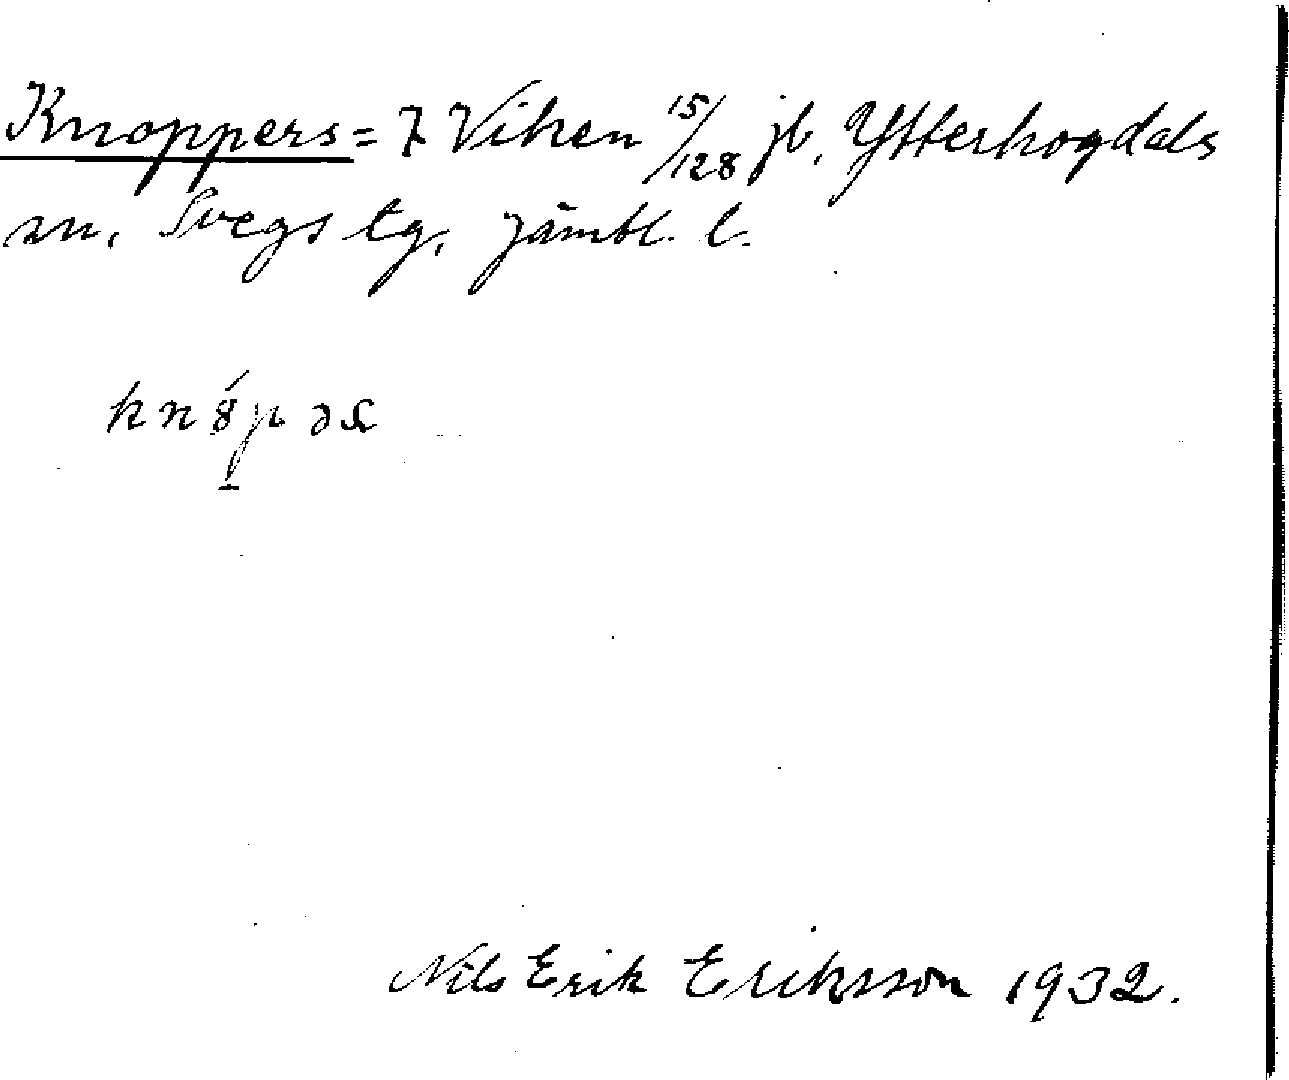 Knoppers = 7 Viken 15/128 jb. Ytterhogdals
sn. Svegs tg. Jämtl. l.
Nils Erik Eriksson 1932.